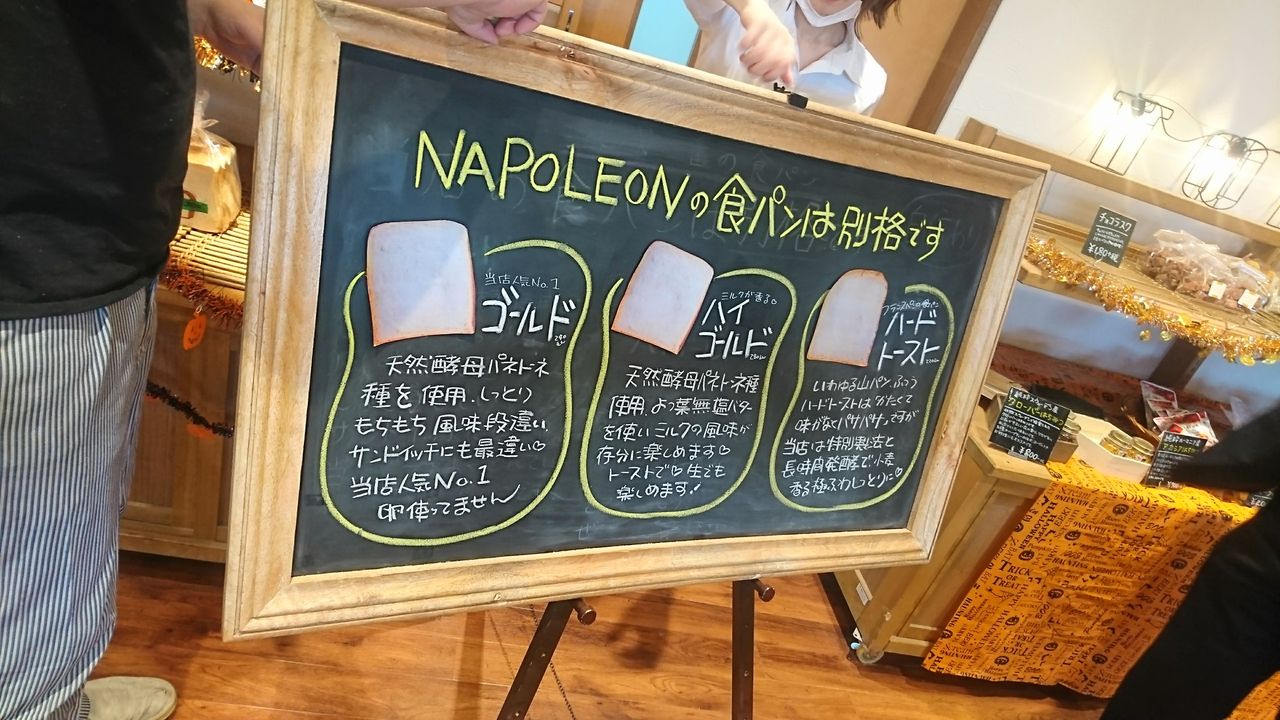 NAPOLEONの食パンは別格です
当店人気No.1
ゴールド
天然酵母パネトーネ
種を使用.しっとり
もちもち風味段違い
サンドイッチにも最適い♡
当店人気No.1
卵使ってません
ミルクが香る
ハイ
ゴールド
天然酵母パネトーネ種
使用.よつ葉無塩バター
を使いミルクの風味が
存分に楽しめます♡
トーストで♡生でも
楽しめます!
ハード
トースト
いわゆる山パン ふつう
ハードトーストはかたくて
味がなくパサパサ.ですが
当店は特別製法と
長時間発酵で小麦
香る極ふわしっとりに♡
チョコラスク
¥180+税
クローバーはちみつ
¥800
TRICK
OR
TREAT
HAPPY
HALLOWEEN
HAUNTING